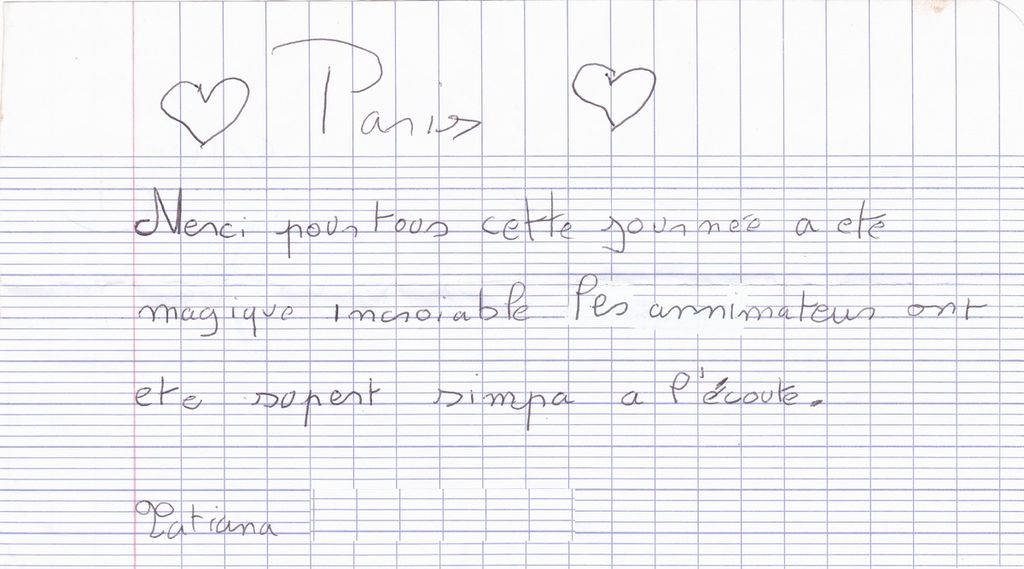 Paris
Merci pour tous cette journeé a eté
magique incroiable les annimateur ont
ete supert simpa a l'écoute.
Tatiana